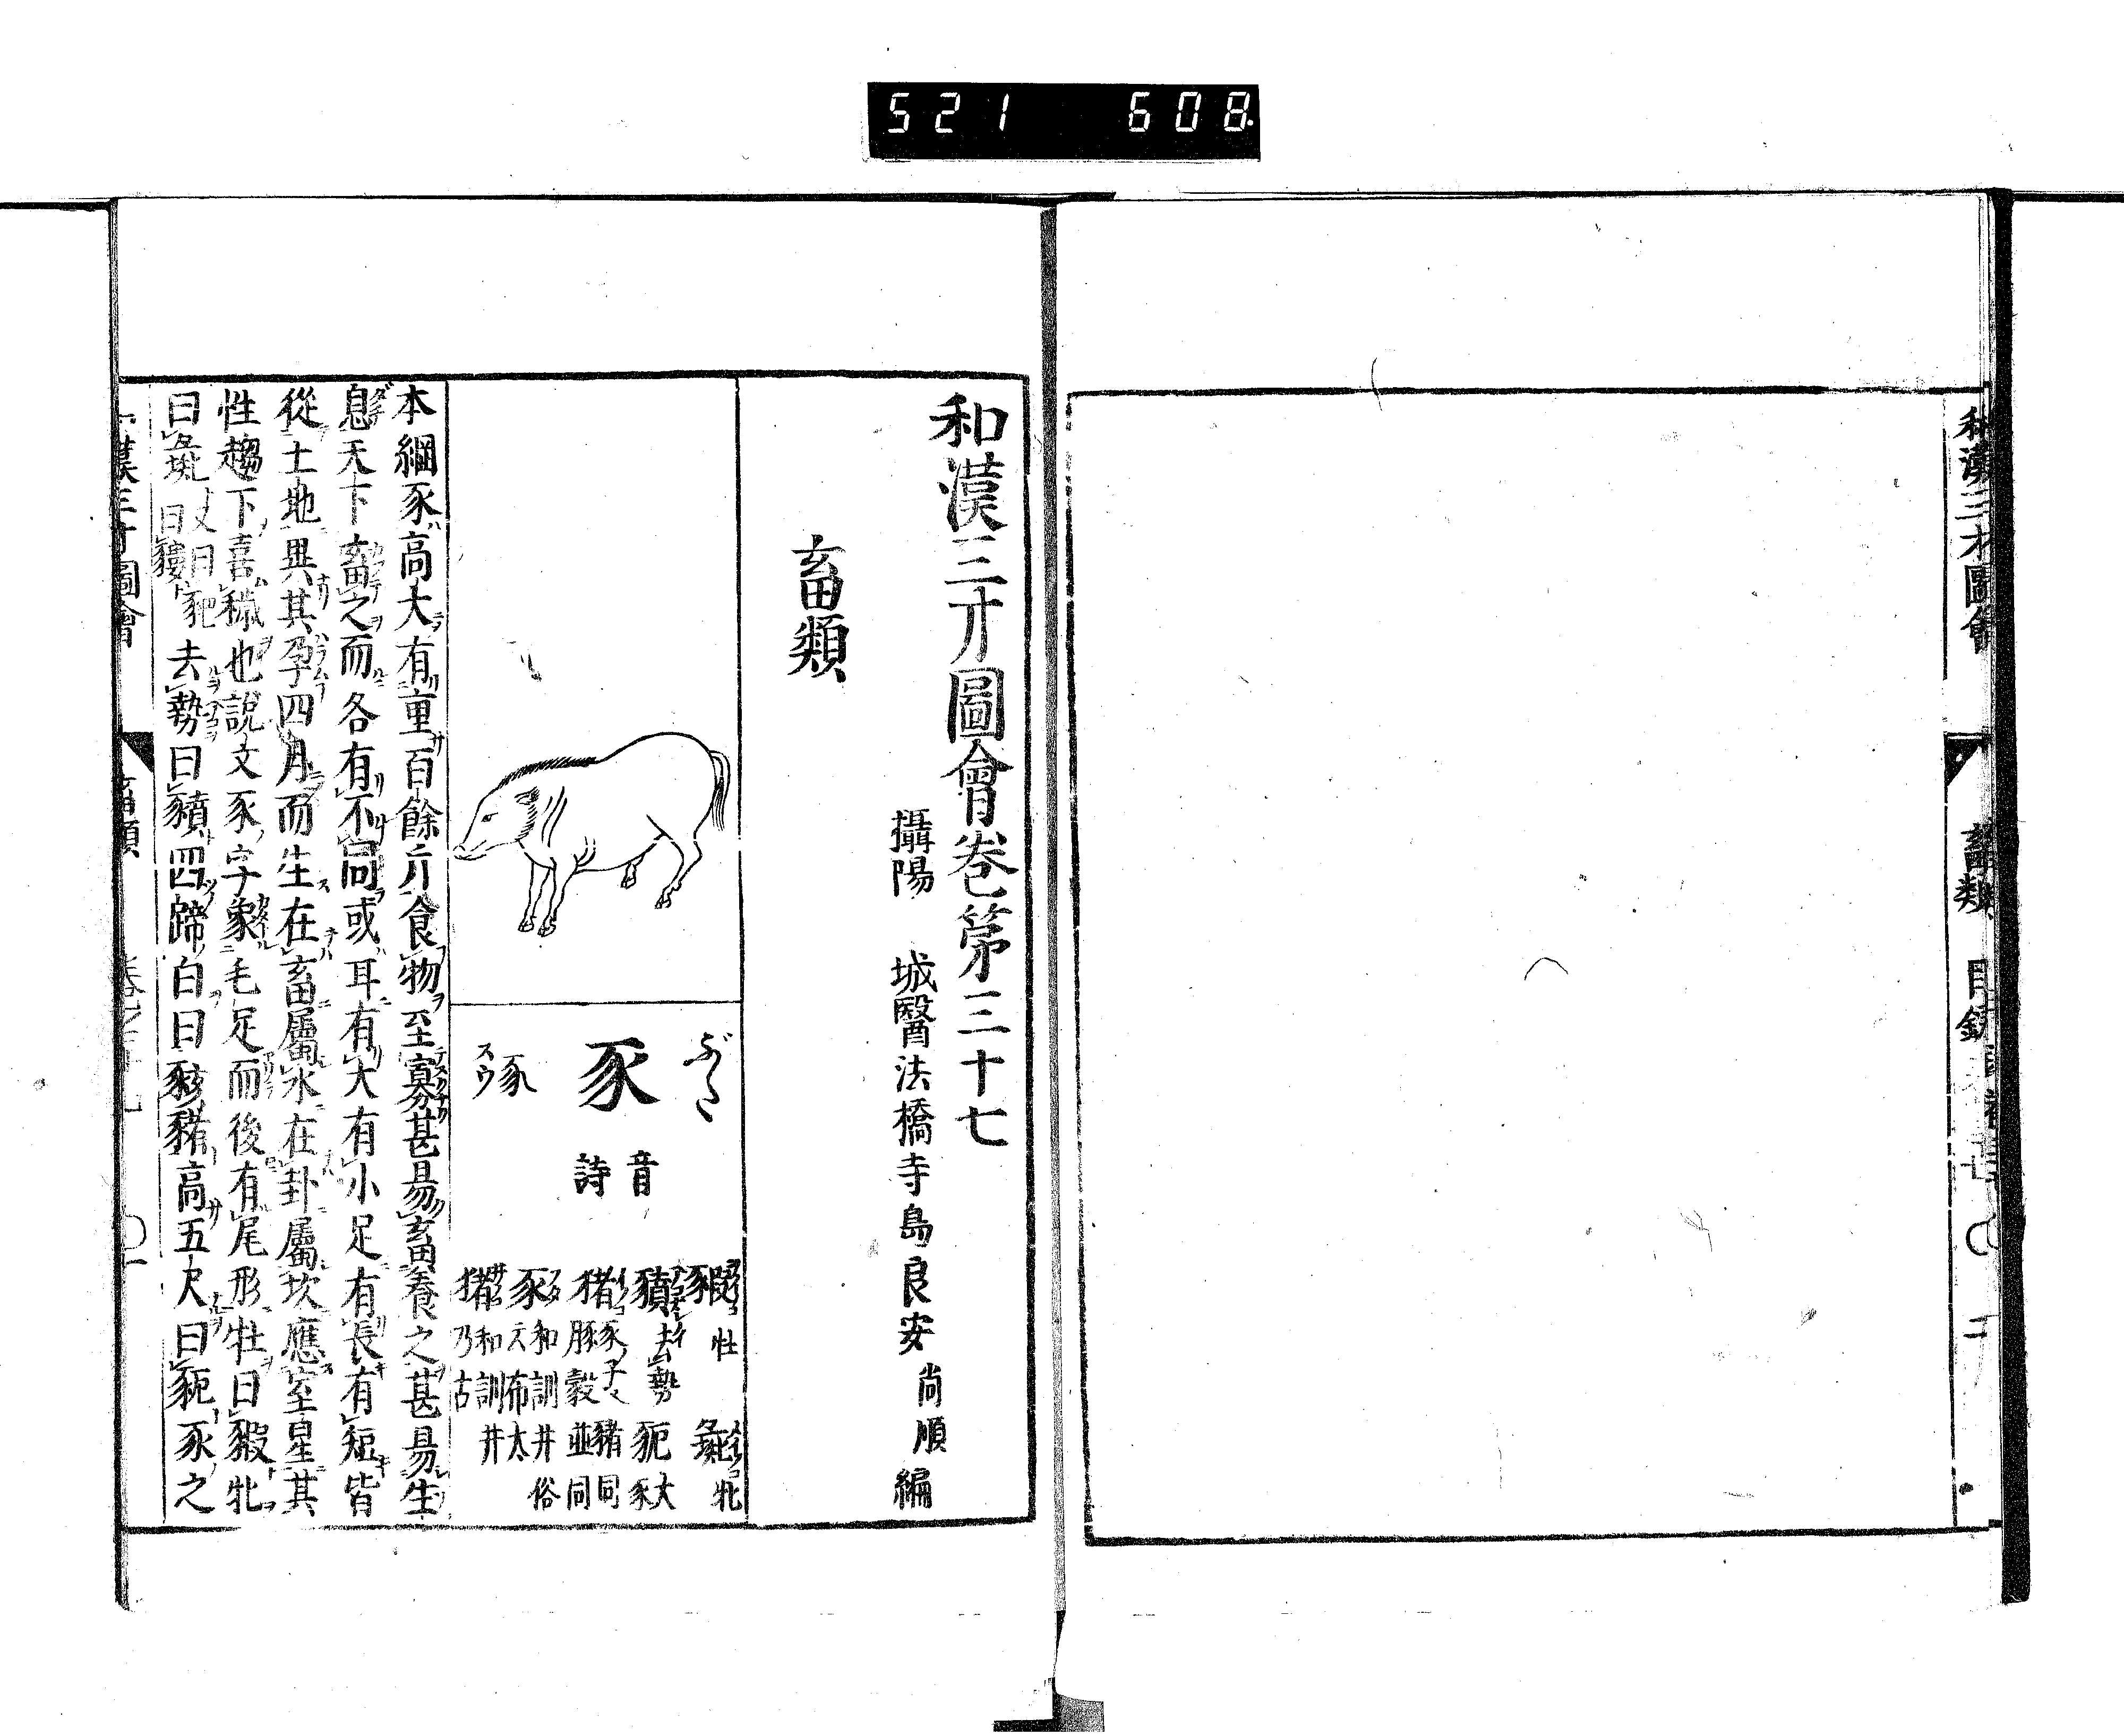 521 608
和漢三才圖會
畜類 目録
和漢三才圖會卷第三十七
攝陽 城醫法橋寺島良安尚順編
畜類
ぶた
豕
音詩
豕
スウ
豭 牡 彘 牝
豶 去勢 豝 大豕
猪 豕子 豬同 豚 豰 並同
豕 和訓井俗云布太
猪 和訓井乃古
本綱豕高大有重百餘斤食物至寡甚易畜養之甚易生
息天下畜之而各有不同或耳有大有小足有長有短皆
從土地異其孕四月而生在畜屬水在卦屬坎應室星其
性趨下喜穢也說文豕字象毛足而後有尾形牡曰豭牝
曰彘又曰豝曰䝏去勢曰豶四蹄白曰豥豬高五尺曰豟豕之
漢三才圖會 畜類